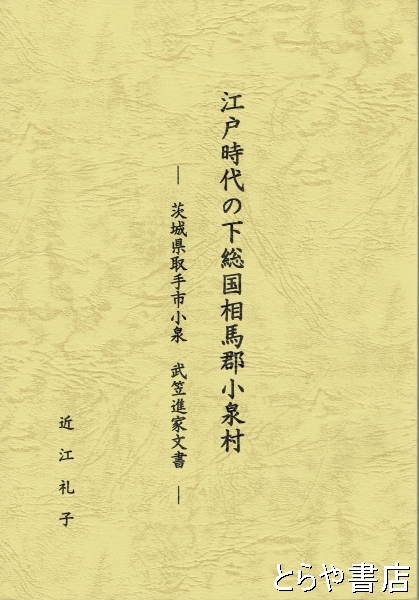 江戸時代の下総国相馬郡小泉村
― 茨城県取手市小泉 武笠進家文書 ―
近江礼子
とらや書店